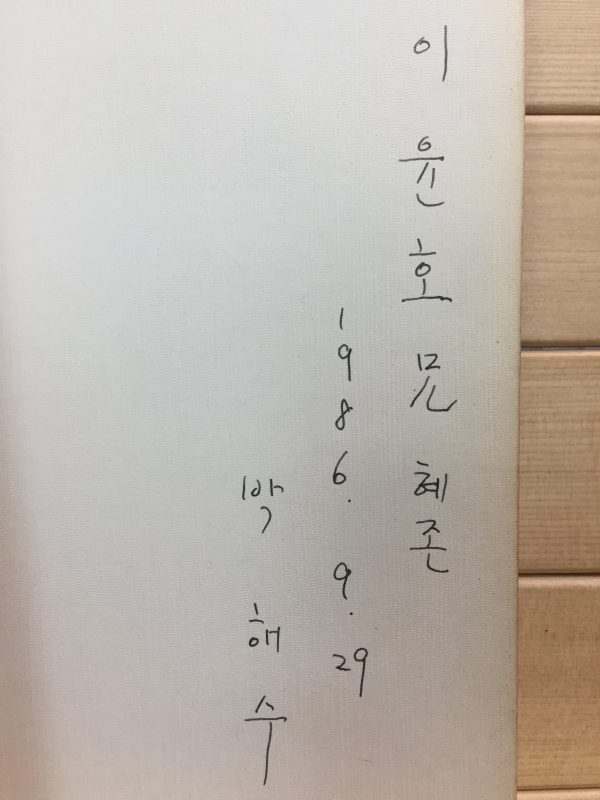 이윤호 兄 혜존
1986. 9. 29
박해수